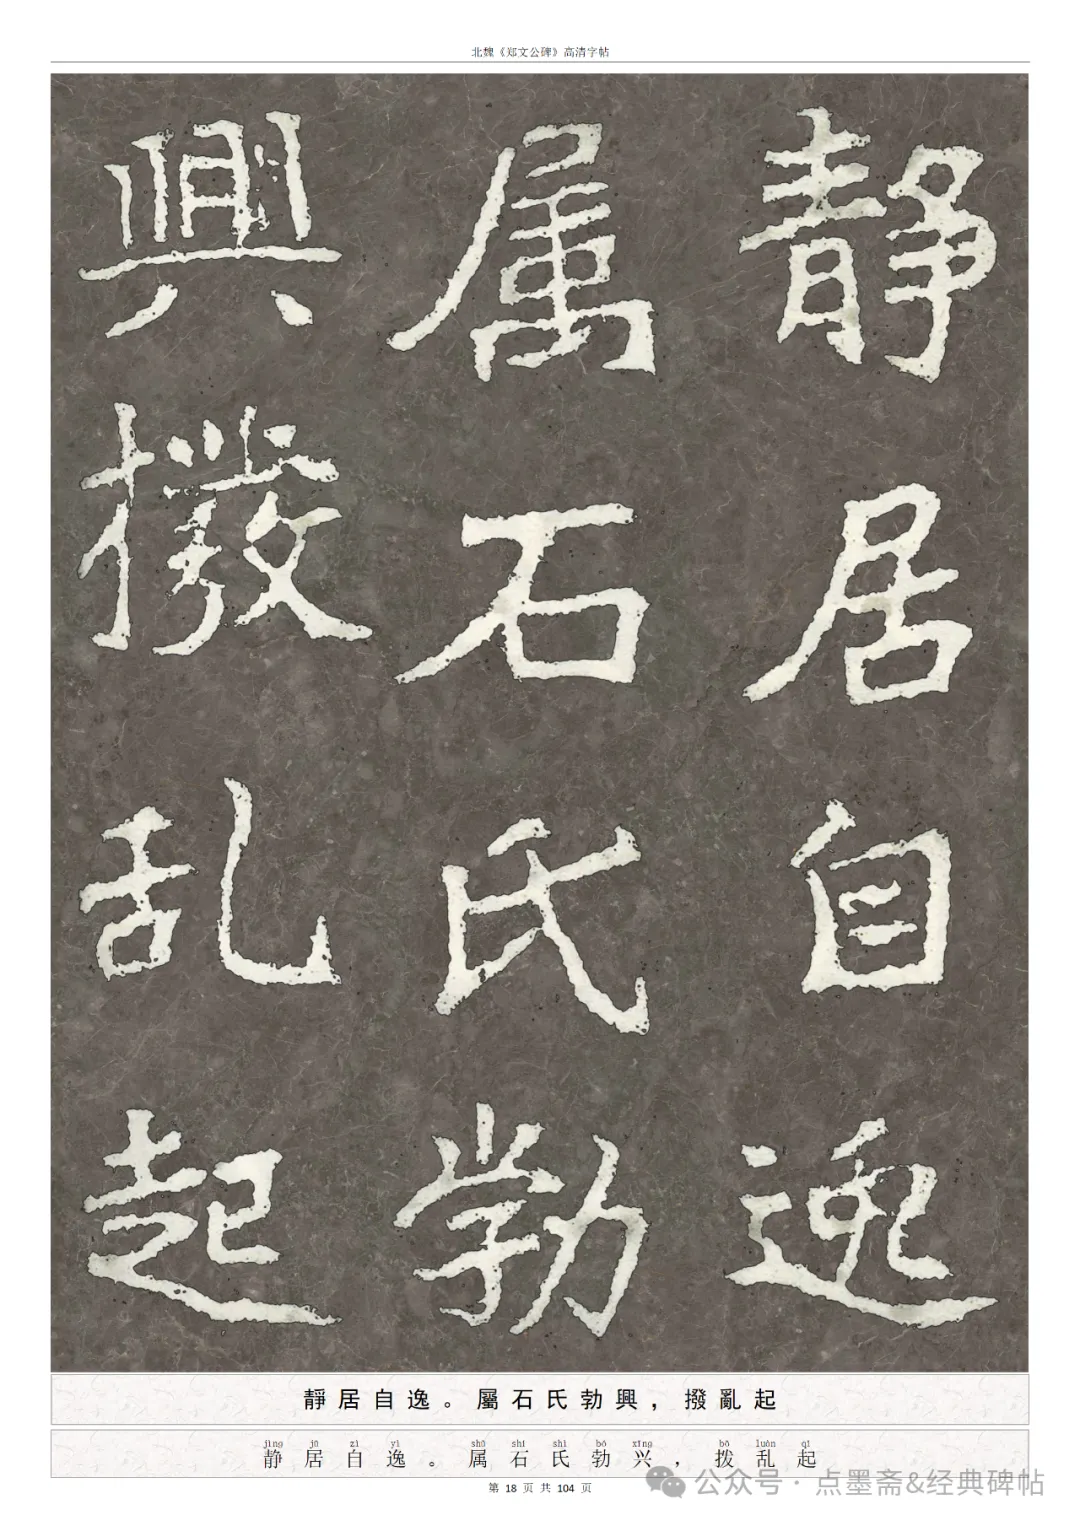 北魏《郑文公碑》高清字帖
靜居自逸
属石氏勃
興撥乱起
靜居自逸。屬石氏勃興，撥亂起
jìng jū zì yì shǔ shí shì bó xīng bō luàn qǐ
静居自逸。属石氏勃兴，拨乱起
第 18 页 共 104 页
公众号·点墨斋&经典碑帖